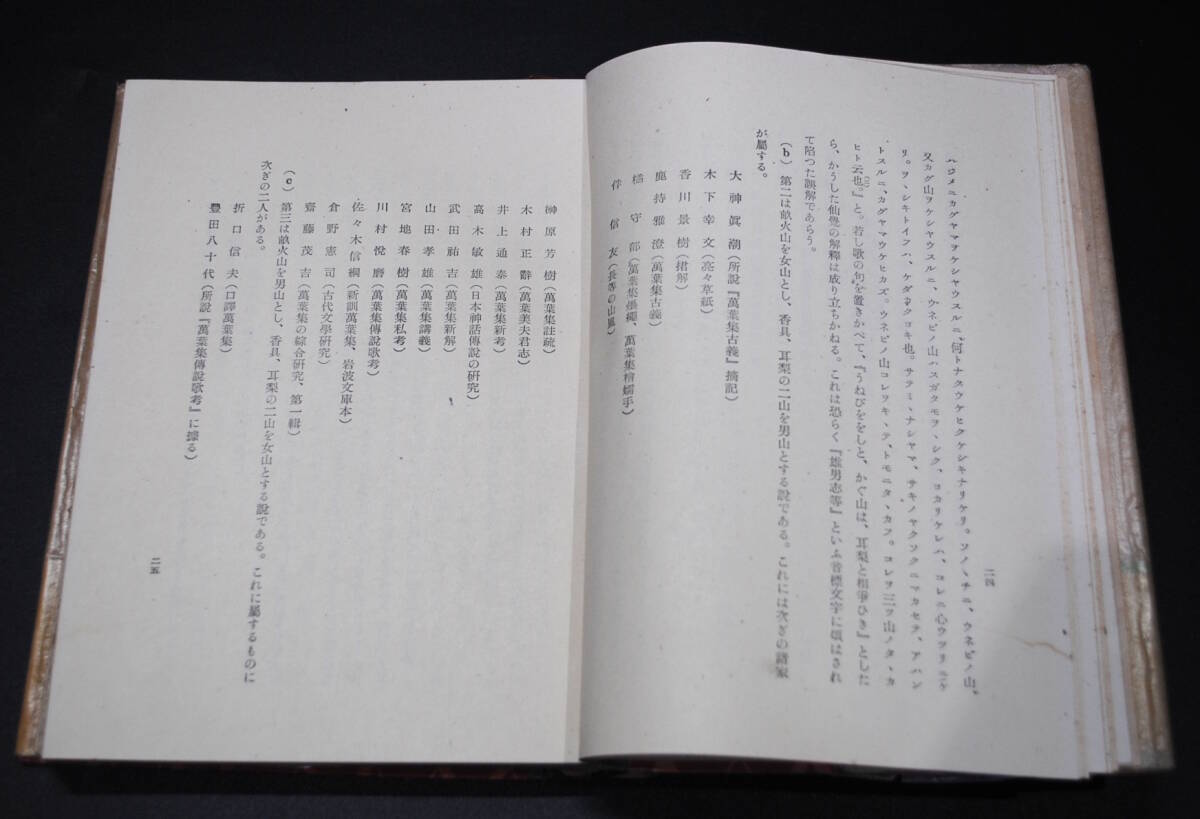 ハジメニカグヤマヲケシヤウスルニ、何トナクウケヒクケシキナリケリ。ソノヽチニ、ウネビノ山、
又カグ山ヲケシヤウスルニ、ウネビノ山ハスガタモヲヽシク、ヨカリケレバ、コレニ心ウツリニケ
リ。ヲヽシキトイフハ、ケダカクヨキ也。サラミヽナシヤマ、サキノヤクソクニマカセテ、アハン
トスルニ、カグヤマウケヒカズ。ウネビノ山コレヲキヽテ、トモニタヽカフ。コレヲ三ツ山ノタヽカ
ヒト云也。』と。若し歌の句を置きかへて、『うねびををしと、かぐ山は、耳梨と相爭ひき』とした
ら、かうした仙覺の解釋は成り立ちかねる。これは恐らく『雄男志等』といふ音標文字に煩はされ
て陷つた誤解であらう。
(b) 第二は畝火山を女山とし、香具、耳梨の二山を男山とする說である。これには次ぎの諸家
が屬する。
大神眞潮(所說『萬葉集古義』摘記)
木下幸文(亮々草紙)
香川景樹(捃解)
鹿持雅澄(萬葉集古義)
橘守部(萬葉集墨繩、萬葉集檜嬬手)
伴信友(長等の山風)
二四
榊原芳樹(萬葉集註疏)
木村正辭(萬葉集美夫君志)
井上通泰(萬葉集新考)
高木敏雄(日本神話傳說の硏究)
武田祐吉(萬葉集新解)
山田孝雄(萬葉集講義)
宮地春樹(萬葉集私考)
川村悅磨(萬葉集傳說歌考)
佐々木信綱(新訓萬葉集、岩波文庫本)
倉野憲司(古代文學硏究)
齋藤茂吉(萬葉集の綜合硏究、第一輯)
(c) 第三は畝火山を男山とし、香具、耳梨の二山を女山とする說である。これに屬するものに
次ぎの二人がある。
折口信夫(口譯萬葉集)
豐田八十代(所說『萬葉集傳說歌考』に據る)
二五